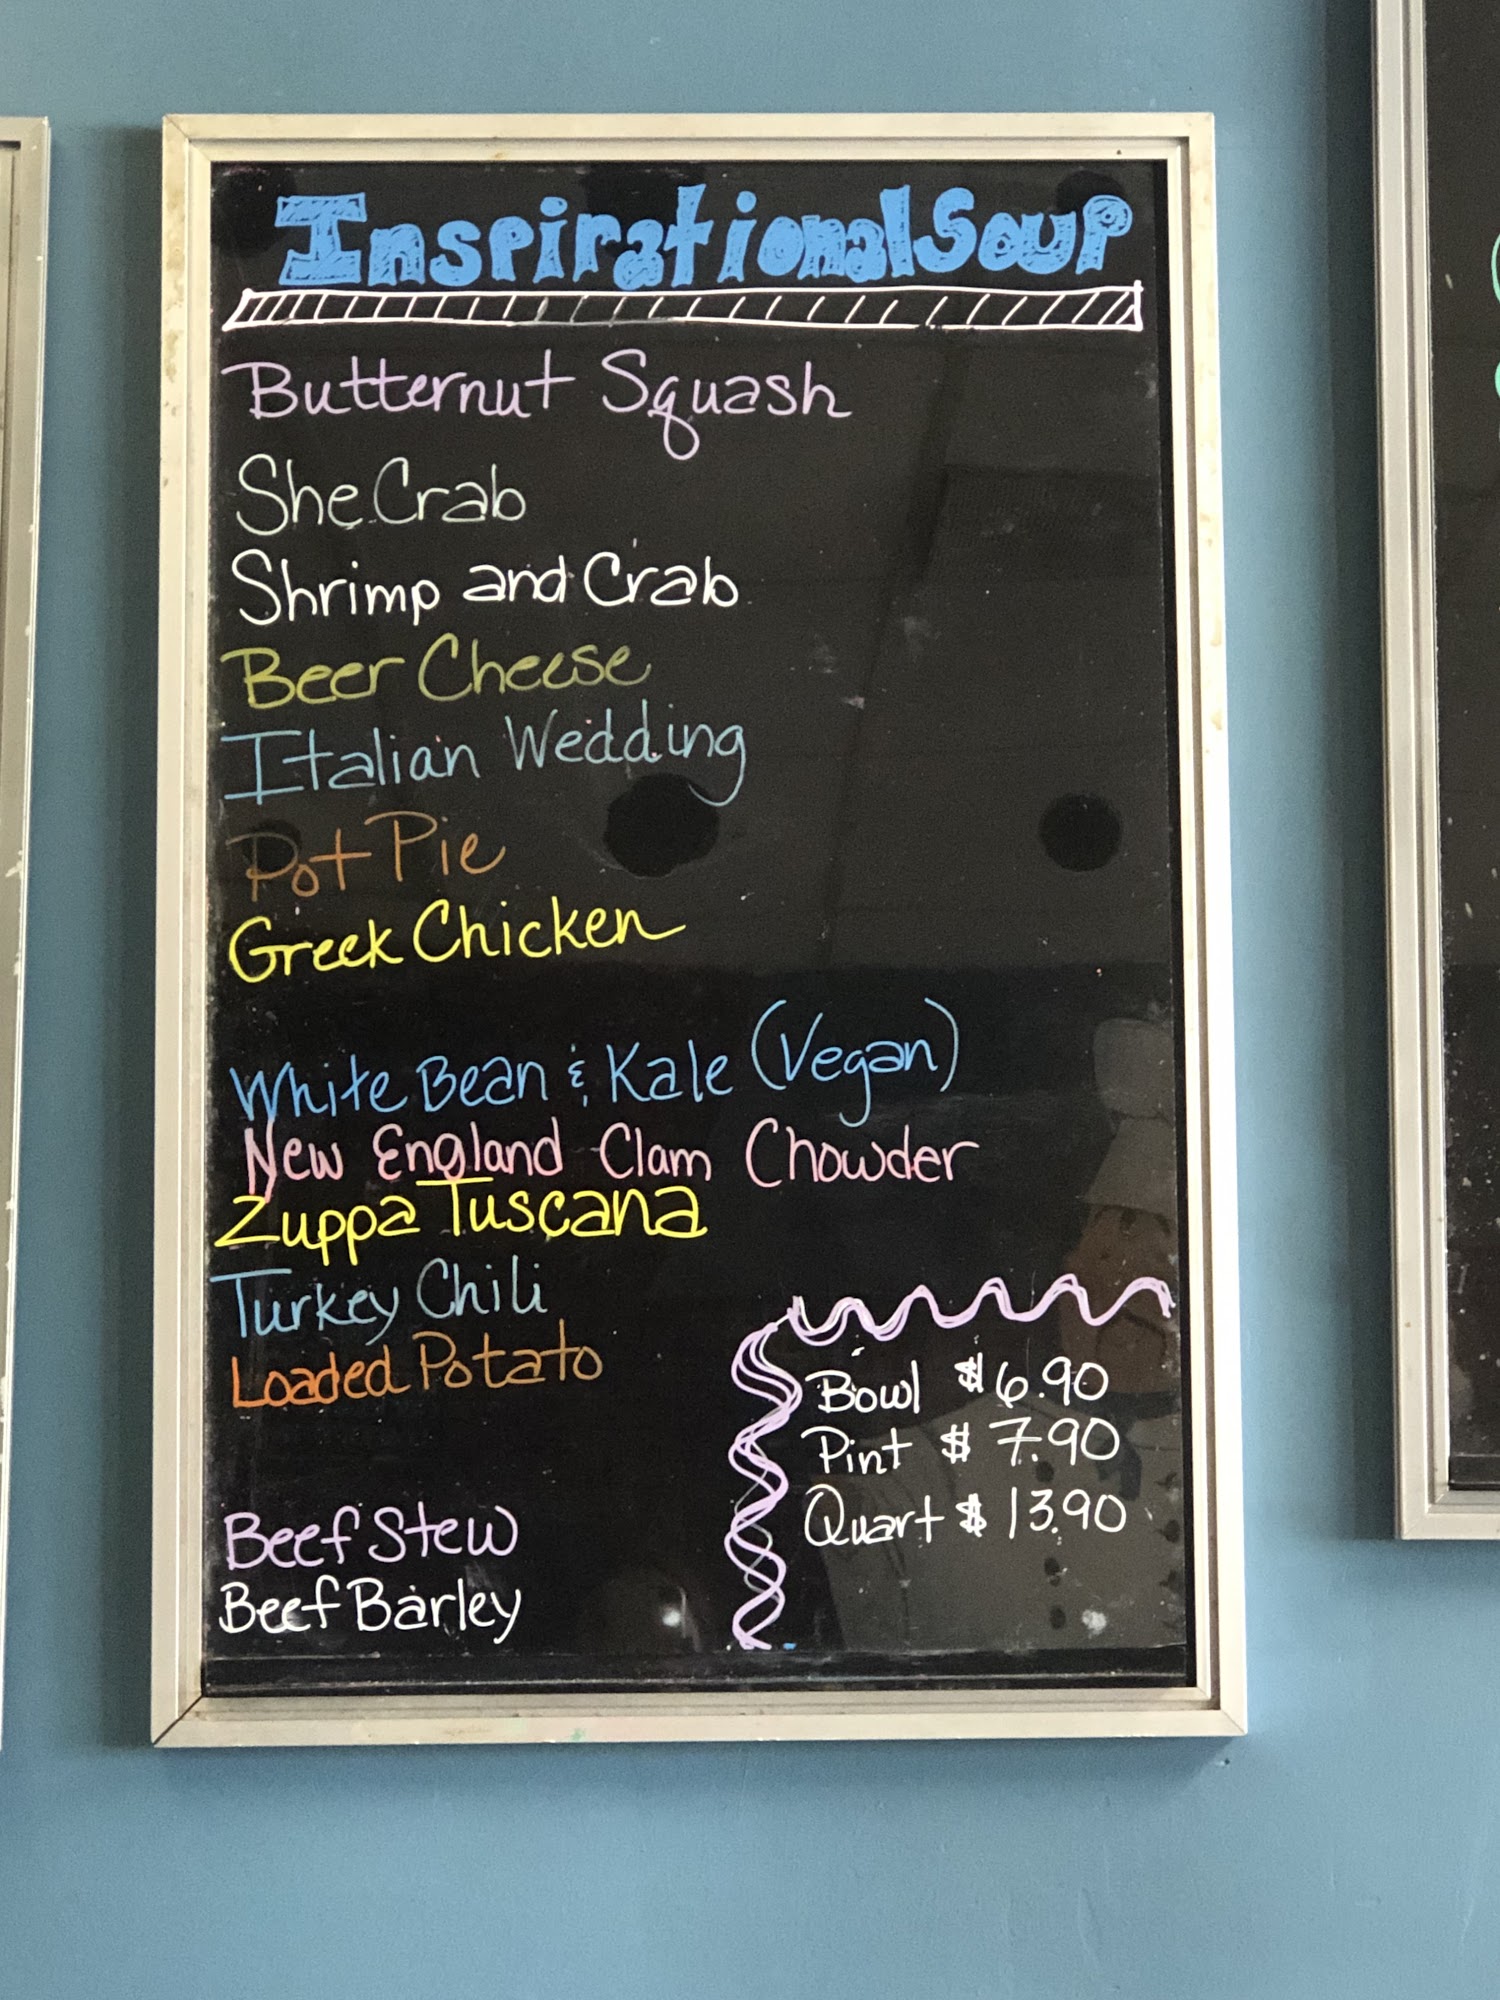 Inspirational Soup
Butternut Squash
She Crab
Shrimp and Crab
Beer Cheese
Italian Wedding
Pot Pie
Greek Chicken
White Bean & Kale (Vegan)
New England Clam Chowder
Zuppa Tuscana
Turkey Chili
Loaded Potato
Beef Stew
Beef Barley
Bowl $6.90
Pint $7.90
Quart $13.90